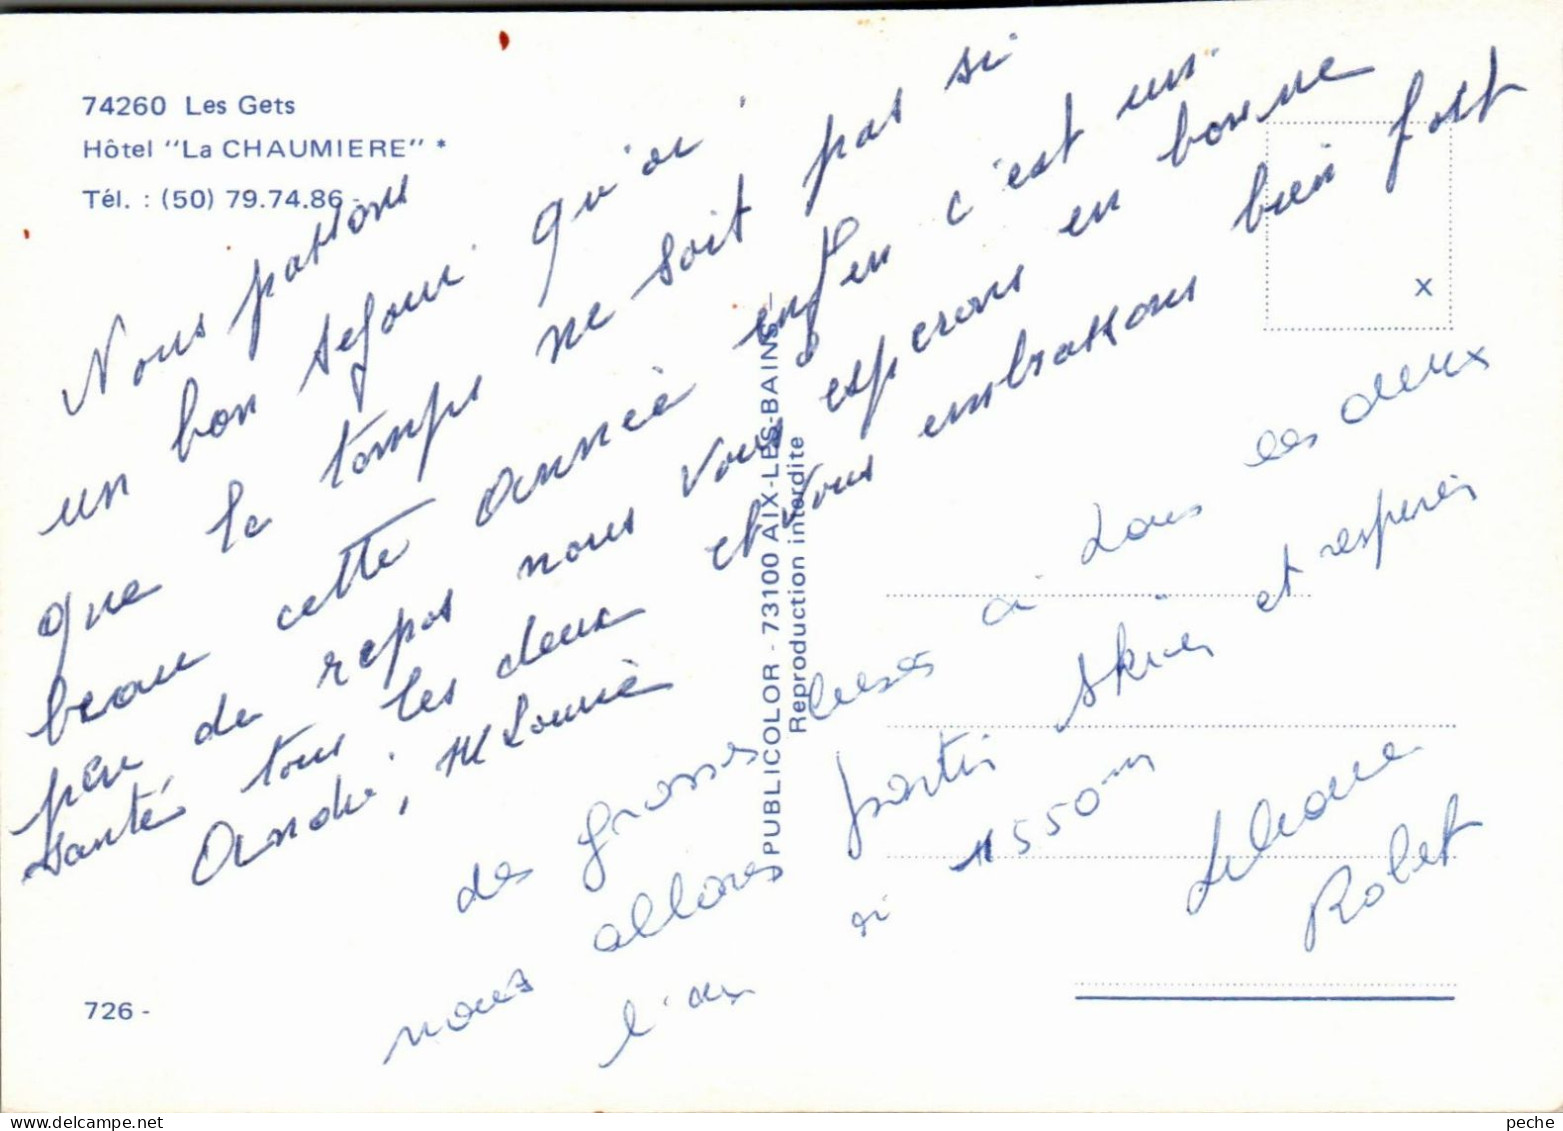 74260 Les Gets
Hôtel "La CHAUMIERE" *
Tél. : (50) 79.74.86 -
Nous passons
un bon sejour qu'oi
que le temps ne soit pas si
beau cette année enfin c'est un
peu de repos nous vous esperons en bonne
santé tous les deux et vous embrassons bien fort
André, M Louise
des grosses bises a tous les deux
nous allons partir skier et respirer
l'air a 1550m
Robert
PUBLICOLOR - 73100 AIX-LES-BAINS
Reproduction interdite
x
726 -
peche